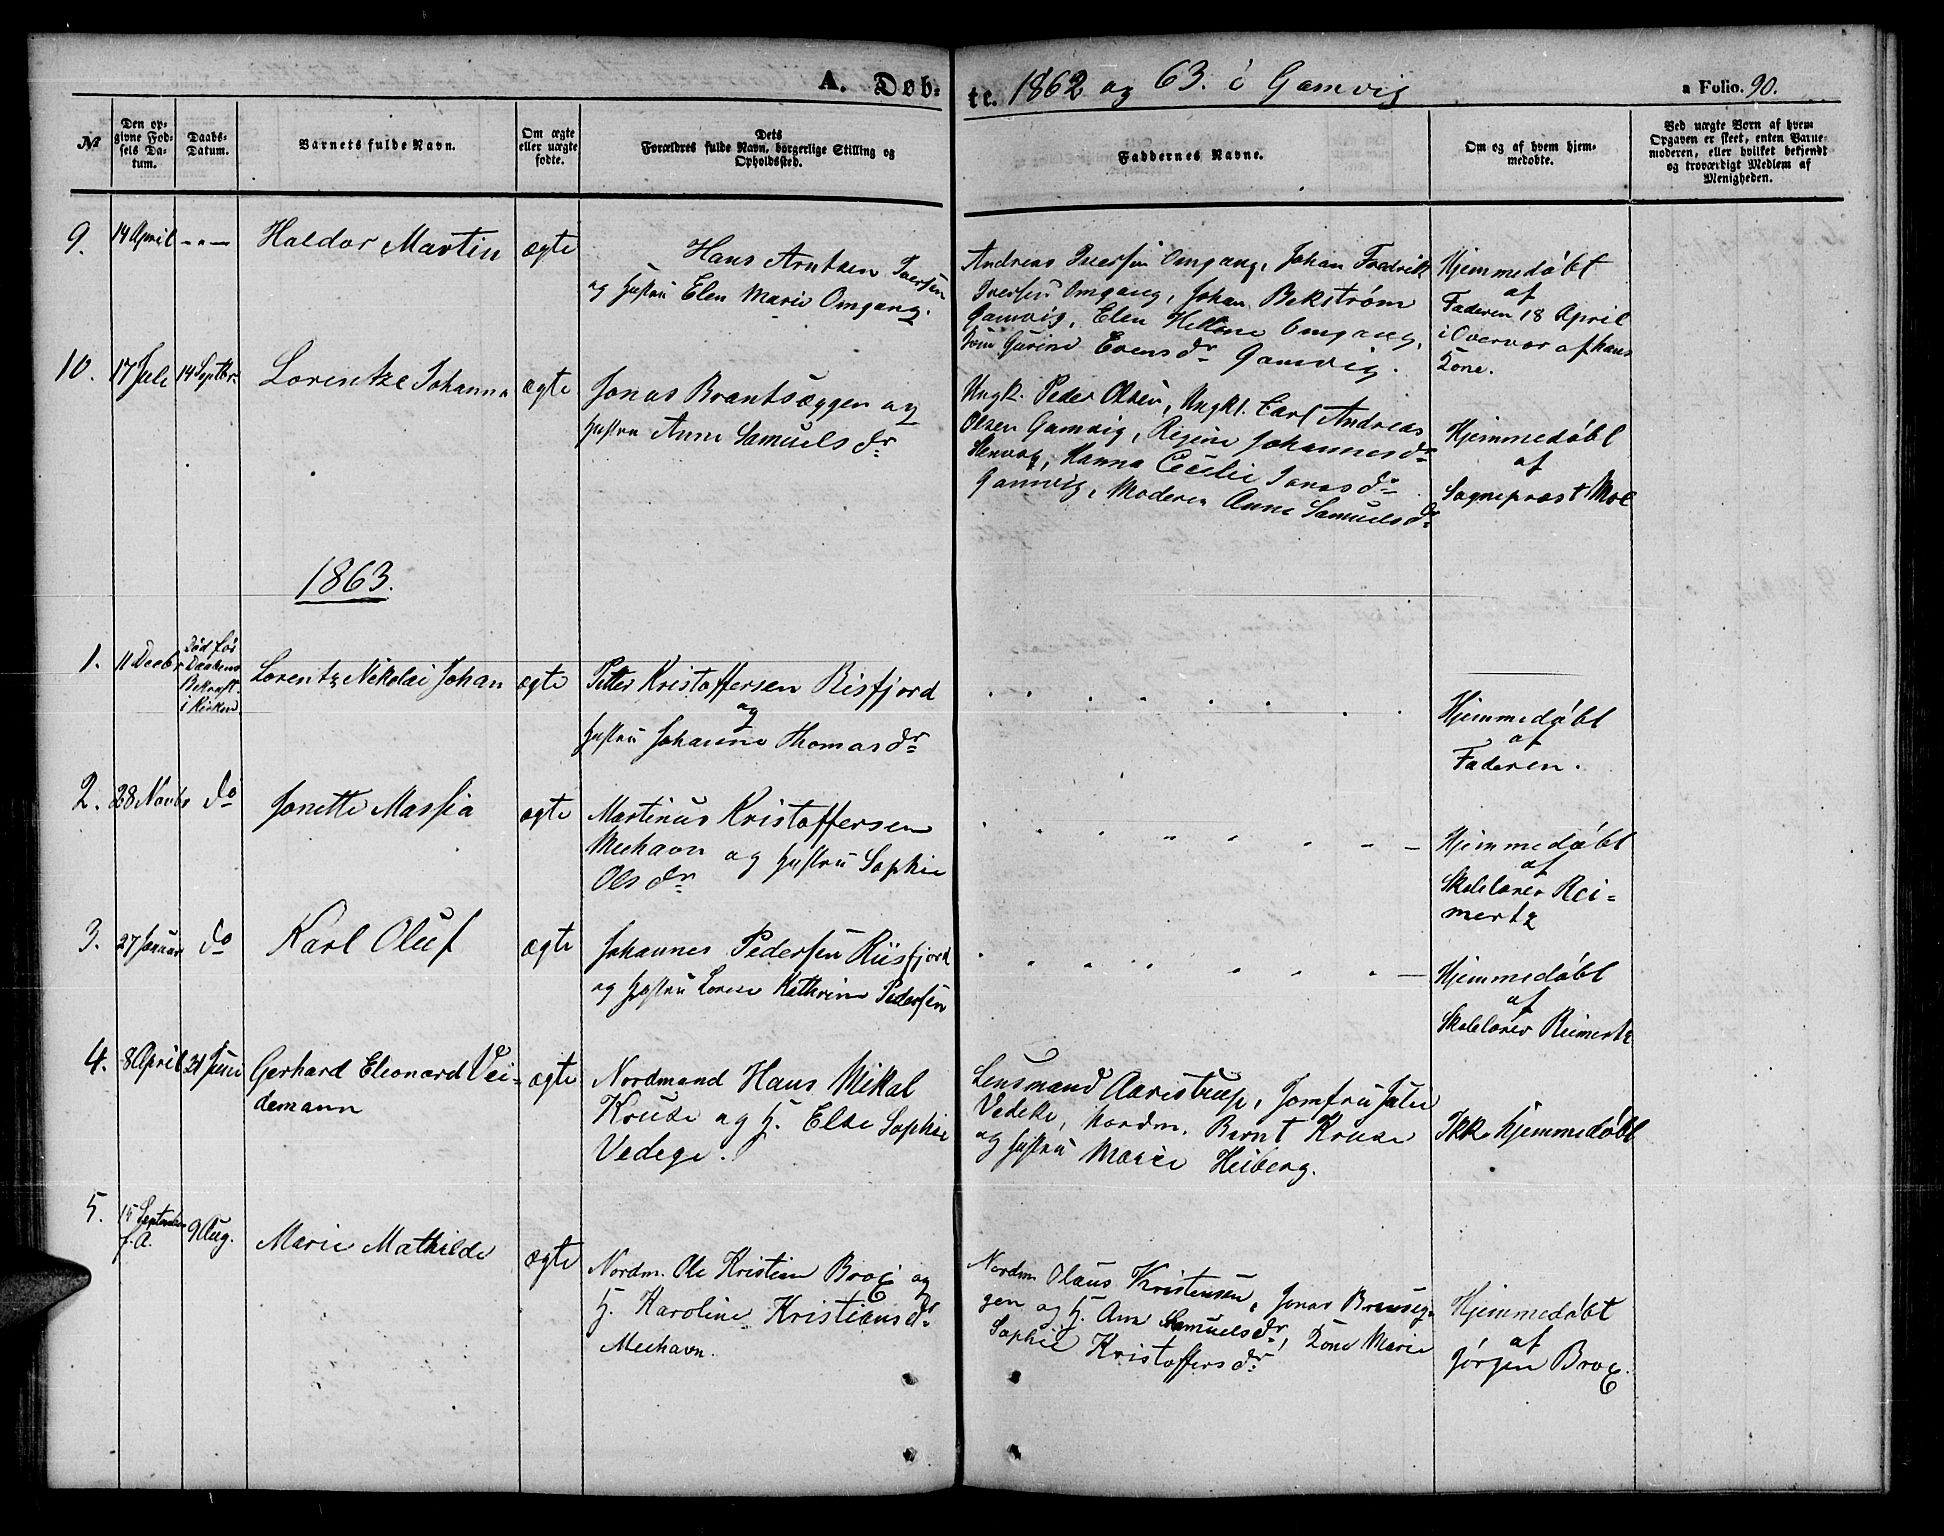 A. Døb-
te. 1862 og 63. i Gamvig
a Folio. 90.
№
Den opgivne Fødsels Datum.
Daabs-Datum.
Barnets fulde Navn.
Om ægte eller uægte fødte.
Dets
Forældres fulde Navn, borgerlige Stilling og
Opholdssted.
Faddernes Navne.
Om og af hvem hjemmedøbte.
Ved uægte Børn af hvem
Opgaven er skeet, enten Barnemoderen, eller hvilket bekjendt
og troværdigt Medlem af
Menigheden.
9. 14 April - " - Haldor Martin ægte
Hans Arntsen Iversen
og Hustru Elen Marie Omgang.
Andreas Iversen Omgang, Johan Fredrik
Iversen Omgang, Johan Bekstrøm
Gamvig, Elen Helene Omgang,
Gurine Evensdr Gamvig.
Hjemmedøbt
af
Faderen 18 April
i Overvær af hans
Kone.
10. 17 Juli 14 Septbr. Lorentze Johanna ægte
Jonas Brantsæggen og
Hustru Anne Samuelsdr
Ungk. Peder Olsen, Ungk. Carl Andreas
Olsen Gamvig, Regine Johannesdr
Stenvog, Hanna Cecilie Jonasdr
Gamvig, Moderen Anne Samuelsdr
Hjemmedøbt
af
Sogneprest Moe
1863.
1. 11 Decbr
Død før
Daabens
Bekræft.
i Kirken
Lorentz Nikolai Johan ægte
Petter Kristoffersen Risfjord
og
Hustru Johanne Thomasdr
Hjemmedøbt
af
Faderen.
2. 28 Novbr do Jonette Massia ægte
Martinus Kristoffersen
Meehavn og Hustru Sophie
Olsdr
Hjemmedøbt
af
Skolelærer Rei-
mertz
3. 27 Januar do Karl Oluf ægte
Johannes Pedersen Riisfjord
og Hustru Lovise Kathrine Pedersen
Hjemmedøbt
af
Skolelærer Reimertz
4. 8 April 21 Juni Gerhard Eleonard Vei-
demann
ægte
Nordmand Hans Mikal
Kruse og H. Else Sophie
Vedege.
Lensmand Aarestrup, Jomfru Julie
Vedeke, Nordm. Bernt Kruse
og Hustru Marie Heiberg.
Ikke hjemmedøbt
5. 15 September
f. A.
9 Aug. Marie Mathilde ægte
Nordm. Ole Kristian Brox og
H. Karoline Kristiansdr
Meehavn.
Nordm. Olaus Kristensen, Jonas Brænseg-
gen og H. Ane Samuelsdr, Kone Marie
Sophie Kristoffersdr
Hjemmedøbt
af
Jørgen Brox.